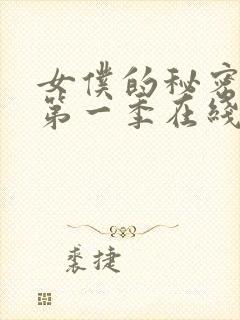 女僕的秘密
第一季在綫
裘捷